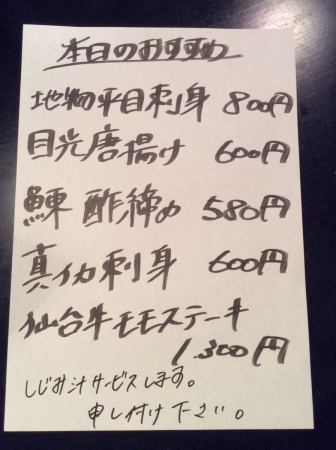 本日のおすすめ
地物平目刺身 800円
目光唐揚け 600円
鰊 酢締め 580円
真イカ刺身 600円
仙台牛モモステーキ
1.300円
しじみ汁サービスします。
申し付け下さい。